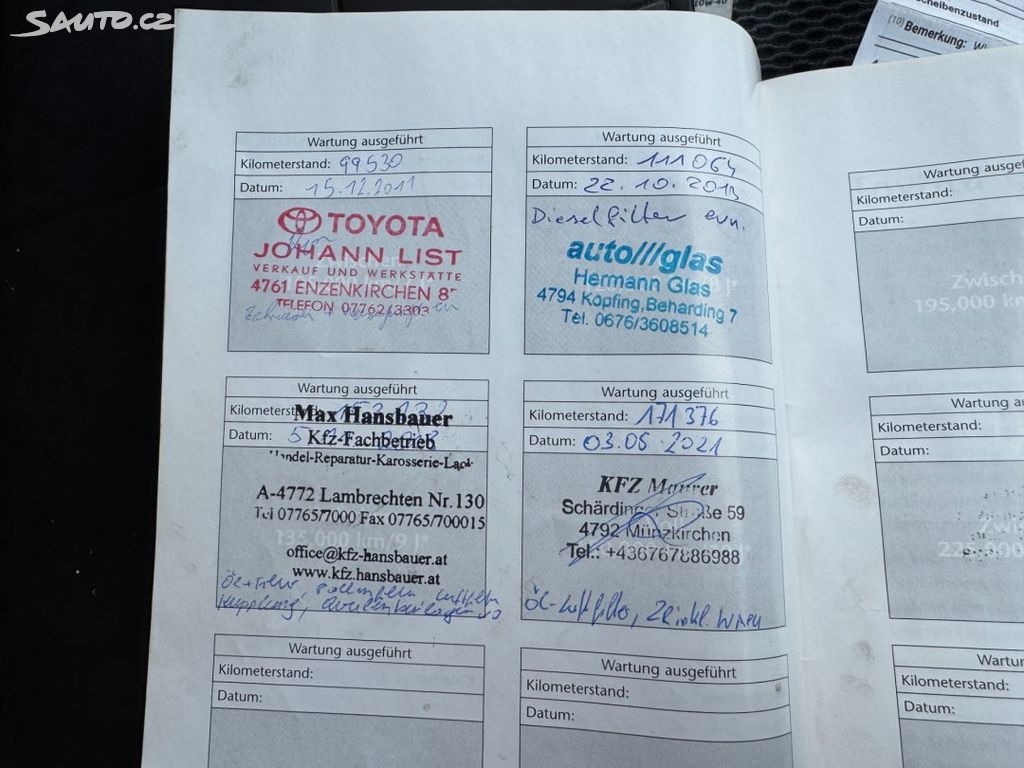 SAUTO.CZ
10W-40
scheibenzustand
(10) Bemerkung:
Wartung ausgeführt
Kilometerstand: 99530
Datum: 15.12.2011
TOYOTA
JOHANN LIST
VERKAUF UND WERKSTÄTTE
4761 ENZENKIRCHEN 8
TELEFON 07762/3303
Wartung ausgeführt
Kilometerstand: 111064
Datum: 22.10.2013
Dieselfilter ern.
auto///glas
Hermann Glas
4794 Kopfing, Beharding 7
Tel. 0676/3608514
Wartung ausgeführt
Kilometerst
Datum: 5
Max Hansbauer
Kfz-Fachbetrieb
Handel-Reparatur-Karosserie-Lack
A-4772 Lambrechten Nr.130
Tel 07765/7000 Fax 07765/700015
135,000 km/9 J*
office@kfz-hansbauer.at
www.kfz.hansbauer.at
Öl+Filter, Pollenfilter, Luftfilter
Kupplung,
Wartung ausgeführt
Kilometerstand: 171376
Datum: 03.05.2021
KFZ Maurer
Schärdinger Straße 59
4792 Münzkirchen
Tel.: +436767886988
Öl-Luftfilter,
Wartung ausgeführt
Kilometerstand:
Datum:
Wartung ausgeführt
Kilometerstand:
Datum:
Wartung ausgef
Kilometerstand:
Datum:
Zwisch
195,000 km
Wartung au
Kilometerstand:
Datum:
Zwi
225,000
Wartun
Kilometerstand:
Datum: